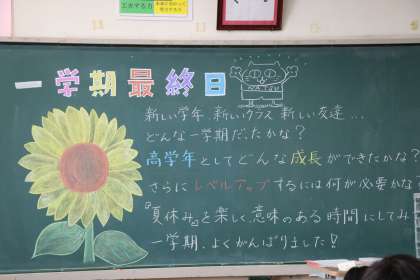 一学期最終日
新しい学年 新しいクラス 新しい友達...
どんな一学期だったかな?
高学年としてどんな成長ができたかな?
さらにレベルアップするには何が必要かな
『夏休み』を楽しく、意味のある時間にしてみ
一学期、よくがんばりました!